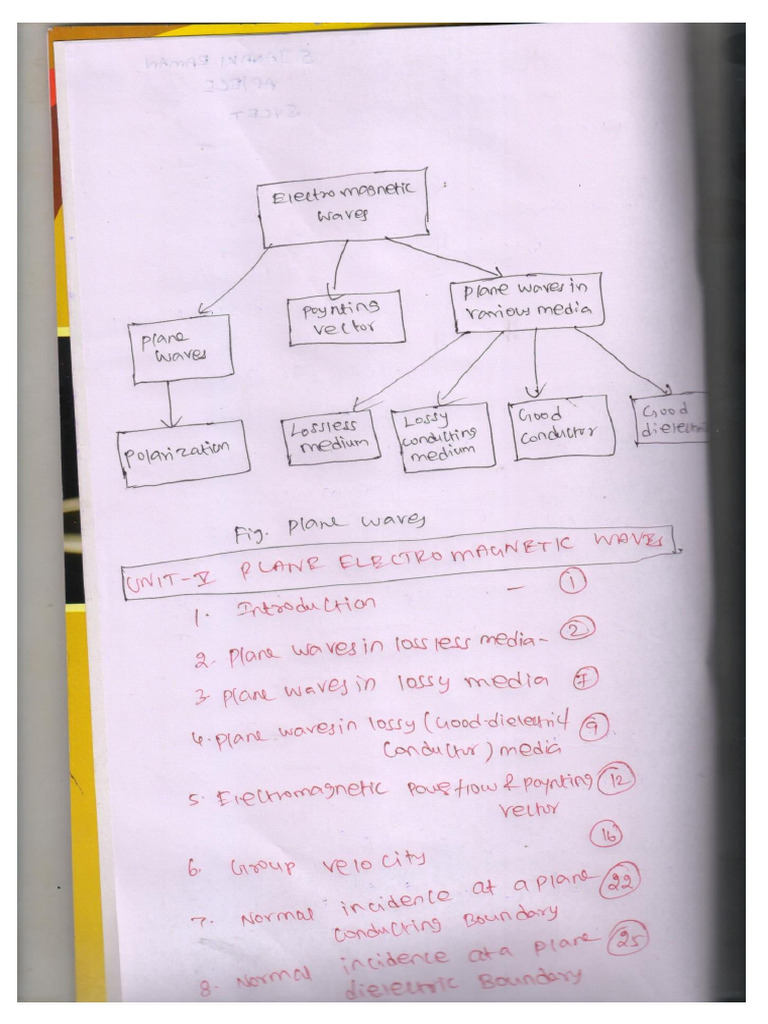 Electromagnetic
waves
Plane
waves
Poynting
vector
Plane waves in
various media
Polarization
Lossless
medium
Lossy
conducting
medium
Good
conductor
Good
Fig. Plane waves
UNIT-V PLANE ELECTROMAGNETIC WAVES
1. Introduction – 1
2. Plane waves in lossless media – 2
3. Plane waves in lossy media 7
4. Plane waves in lossy (Good-dielectric/ 9
Conductor) media
5. Electromagnetic Power flow & Poynting 12
vector
6. Group velocity 16
7. Normal incidence at a plane 22
conducting Boundary
8. Normal incidence at a plane 25
dielectric Boundary